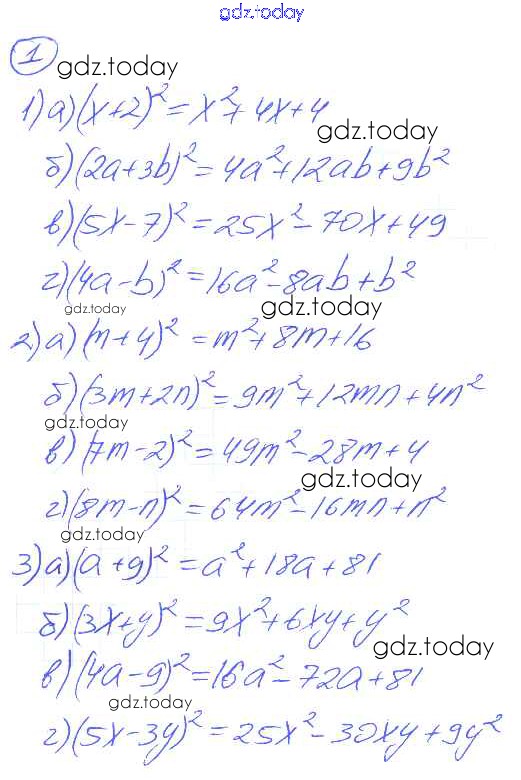 gdz.today
1 gdz.today
1) а) (x+2)² = x²+4x+4
gdz.today
б) (2a+3b)² = 4a²+12ab+9b²
в) (5x-7)² = 25x²-70x+49
г) (4a-b)² = 16a²-8ab+b²
gdz.today gdz.today
2) а) (m+4)² = m²+8m+16
б) (3m+2n)² = 9m²+12mn+4n²
gdz.today
в) (7m-2)² = 49m²-28m+4
gdz.today
г) (8m-n)² = 64m²-16mn+n²
gdz.today
3) а) (a+9)² = a²+18a+81
б) (3x+y)² = 9x²+6xy+y²
gdz.today
в) (4a-9)² = 16a²-72a+81
gdz.today
г) (5x-3y)² = 25x²-30xy+9y²